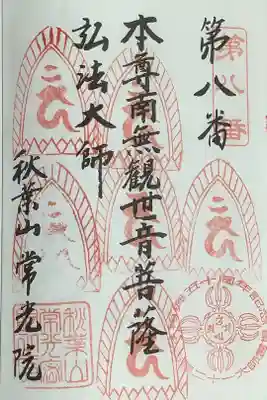 第八番
第八番
本尊南無觀世音菩薩
弘法大師
秋葉山常光院
秋葉山
常光院